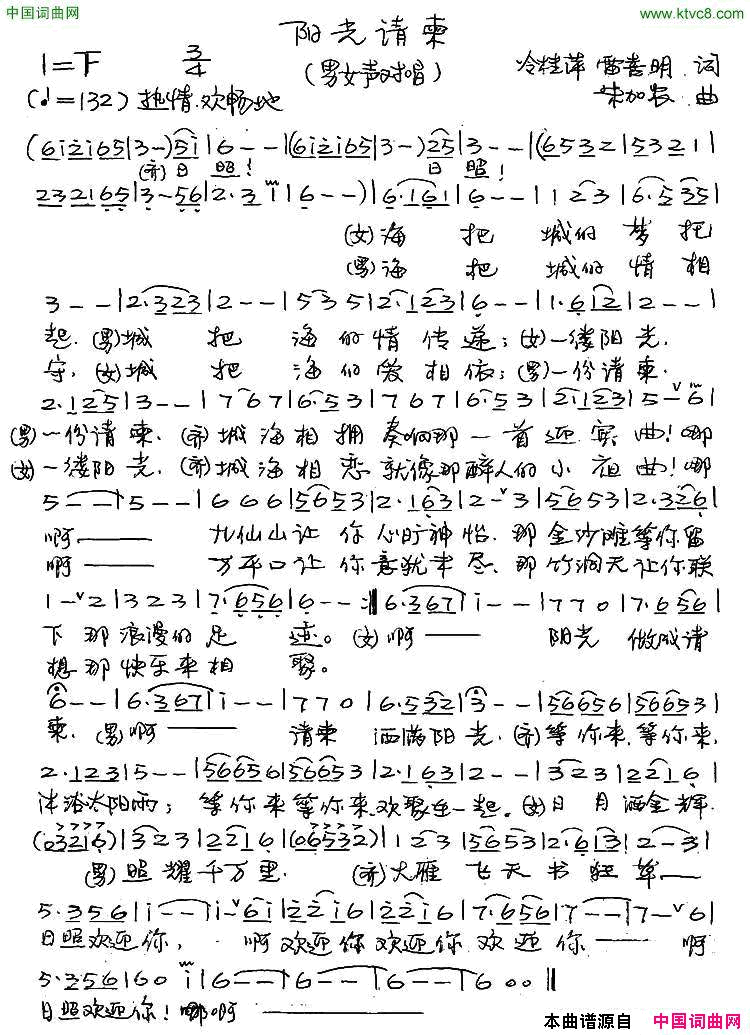 中国词曲网
www.ktvc8.com
阳光请柬
1=F 3/4
(男女声对唱)
冷桂萍 雷喜明 词
朱加农 曲
(♩=132) 热情.欢畅地
(6i2i65|3-)5i|6--|(6i2i65|3-)25|3--|(65321|5321|
(齐)日 照! 日 照!
232165|3-56|2·3i|6--)|6·161|6--|123|6·535|
(女)海 把 城的 梦 托
(男)海 把 城的 情 相
3--|2·323|2--|535|2·123|6--|1·612|2--|
起.(男)城 把 海的情传递;(女)一缕阳光.
守,(女)城 把 海的爱相依;(男)一份请柬.
2·125|3--|767|6·53|767|6·53|2·123|5-6|
(男)一份请柬.(齐)城海相拥奏响那一首迎宾曲!哪
(女)一缕阳光.(齐)城海相恋就像那醉人的小夜曲!哪
5--|5--|666|5653|2·163|2-3|5653|2·326|
啊—— 九仙山让你心旷神怡.那金沙滩等你留
啊—— 万平口让你意犹未尽.那竹洞天让你联
1-2|323|7·656|6--:‖6·367|i--|770|7·656|
下那浪漫的足 迹。(女)啊—— 阳光 做成请
想那快乐来相 聚。
6--|6·367|i--|770|6·532|3--|566656|566531|
柬.(男)啊—— 请柬 洒满阳光.(齐)等你来.等你来,
2·123|5--|566656|566531|2·163|2--|323|2216|
沐浴太阳雨; 等你来等你来.欢聚在一起.(女)日 月洒金辉.
(03216)|323|2216|(06532)|123|5653|2·613|2--|
(男)照耀千万里. (齐)大雁 飞天书狂草——
5·356|i--|i-6i|22i6|22i6|7·656|7--|7-6|
日照欢迎你, 啊欢迎你欢迎你欢迎你—— 啊
5·356|60i|6--|6--|6--|600‖
日照欢迎你!哪啊 ——
本曲谱源自 中国词曲网